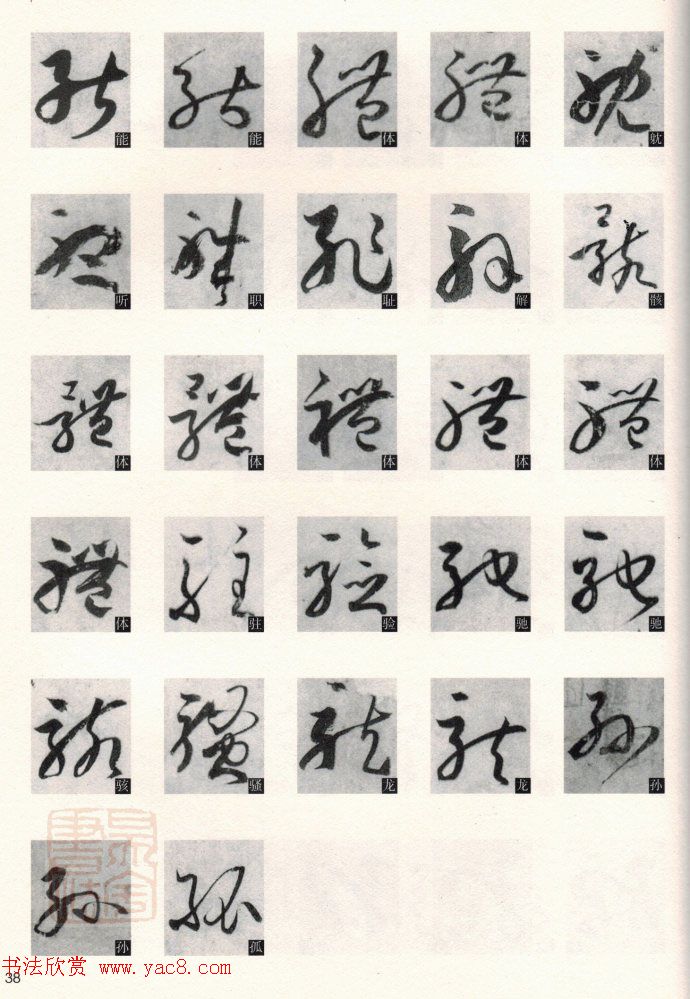 能 能 体 体 躭
听 职 耻 解 骸
体 体 体 体 体
体 驻 验 驰 驰
骇 骚 龙 龙 孙
孙 孤
书法欣赏 www.yac8.com
38